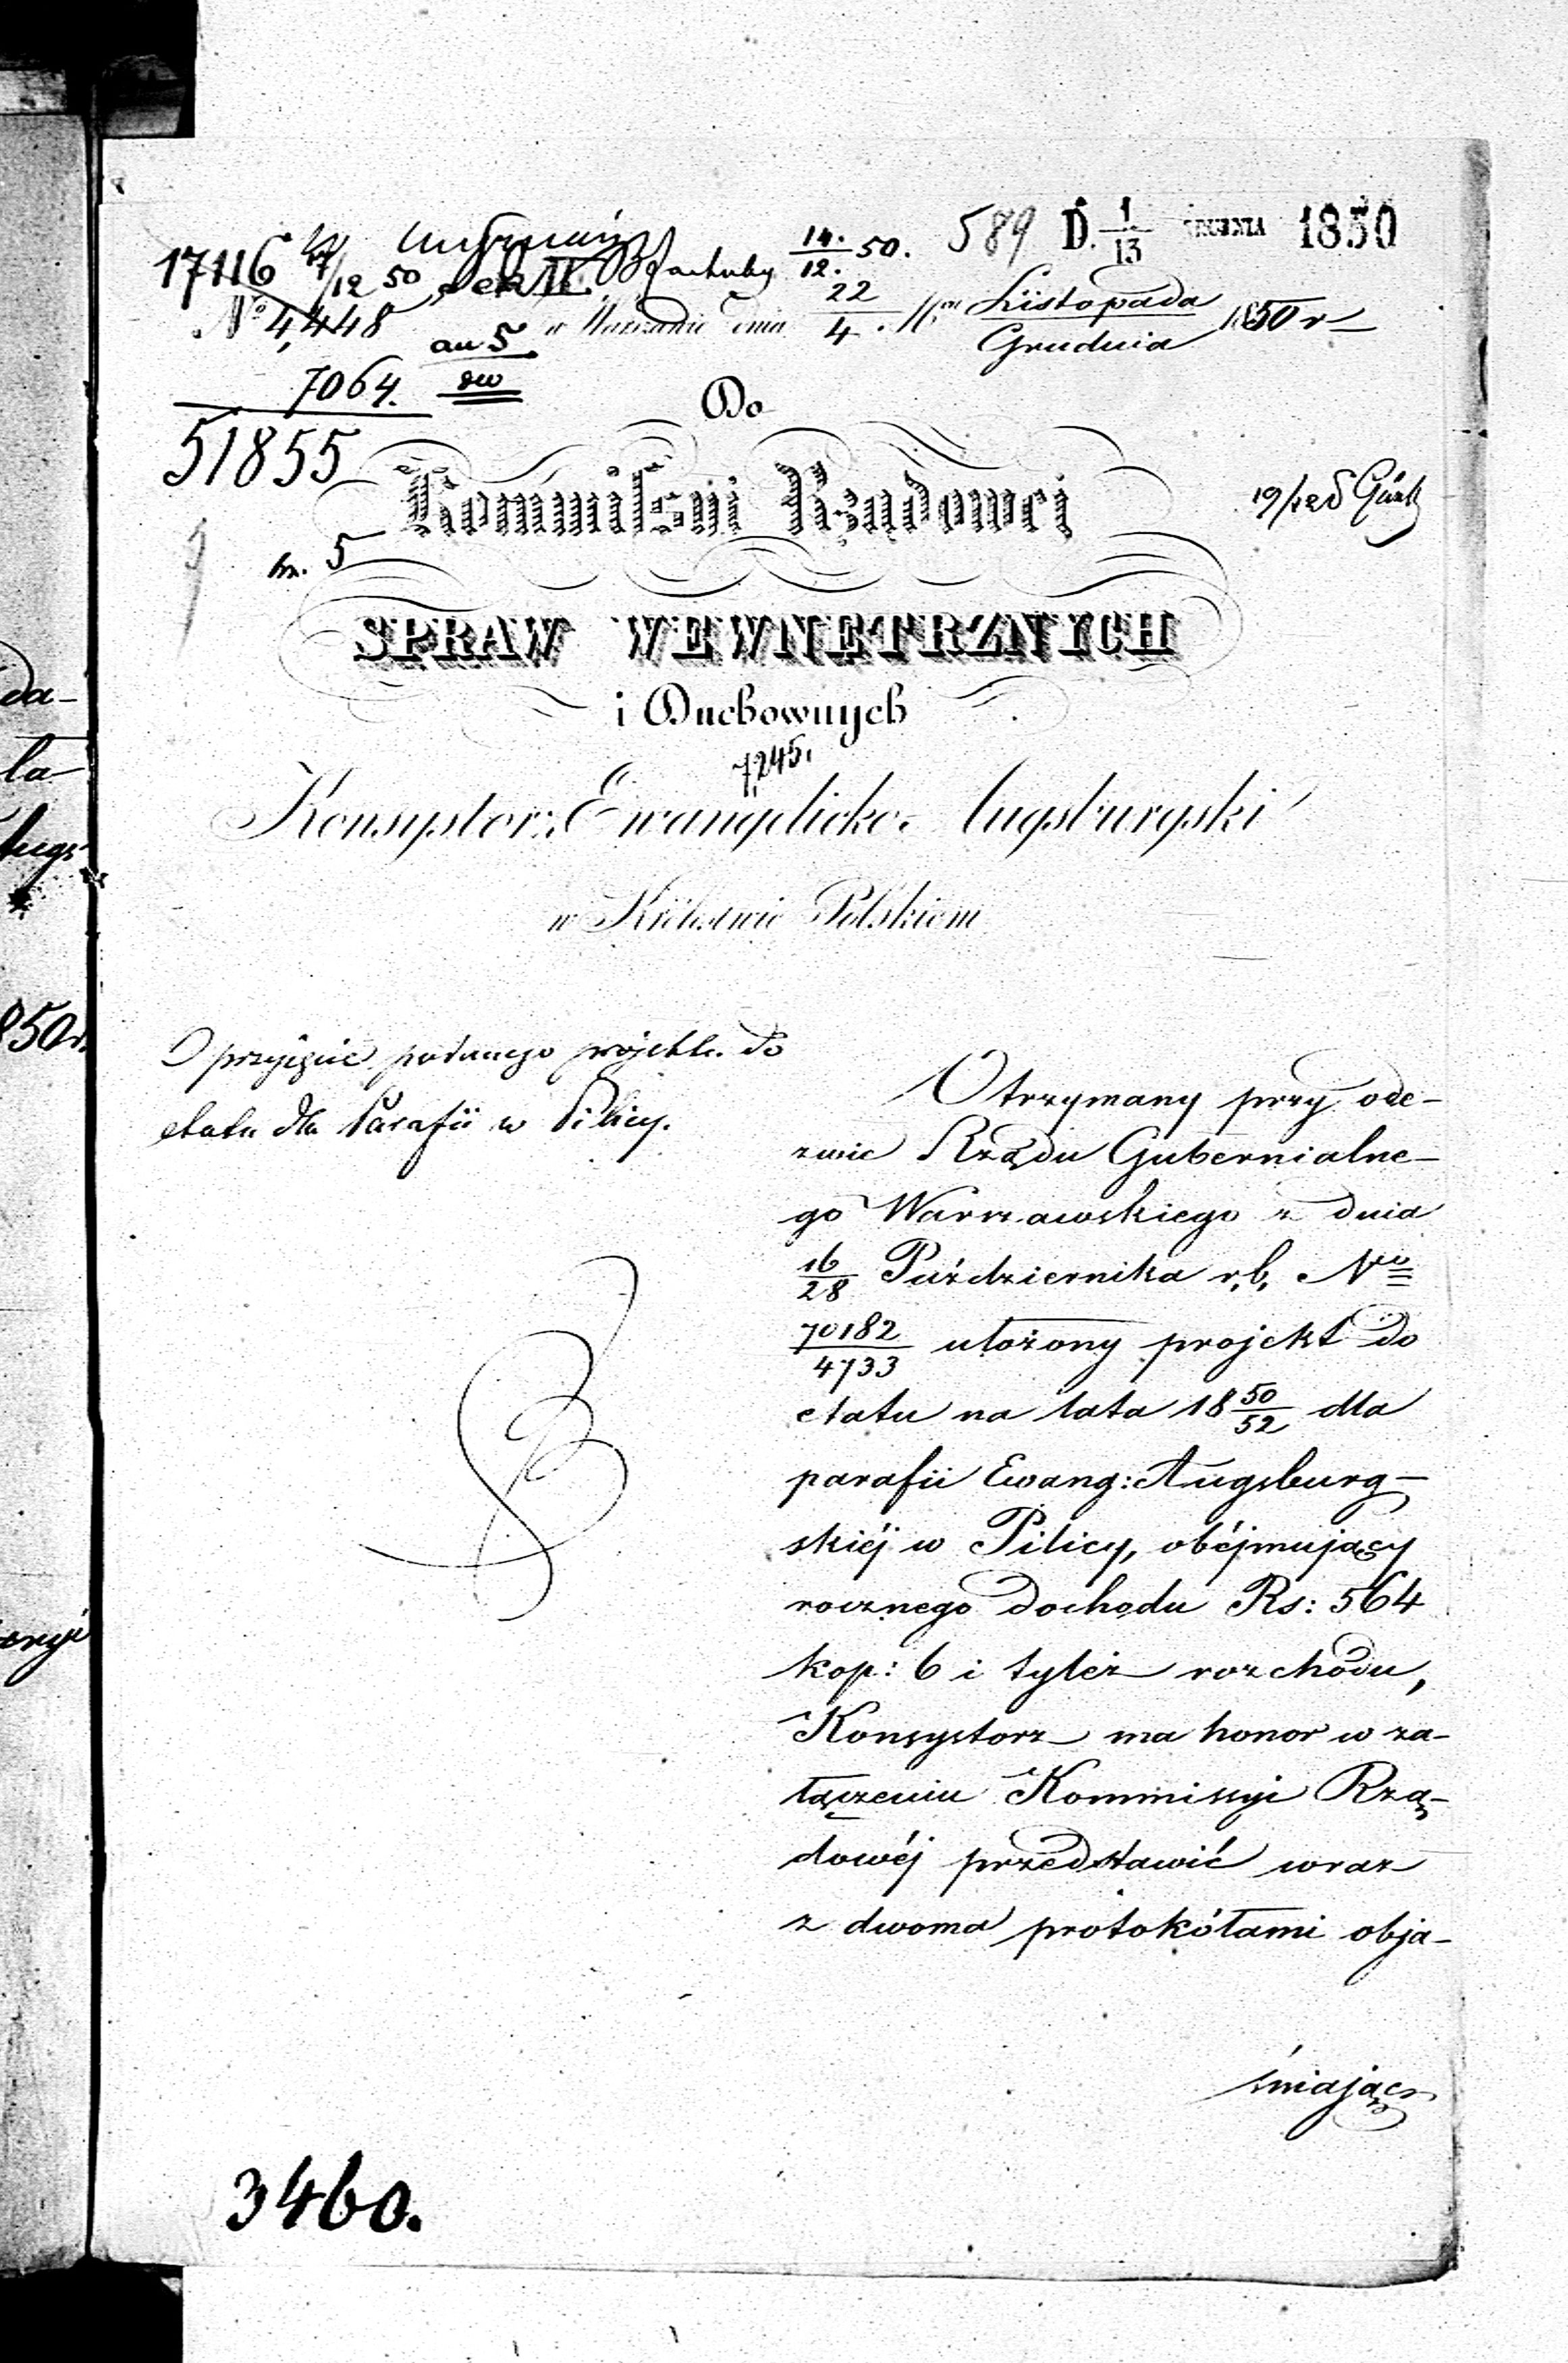 589 D. 1/13 GRUDNIA 1850
17116 17/12 50 Sek II Rachuby 14./12. 50.
№ 4,448 w Warszawie dnia 22/4. Listopada/Grudnia 1850 r
7064.
51855
Do
Kommissyi Rządowej
5
SPRAW WEWNĘTRZNYCH
i Duchownych
7245.
Konsystorz Ewangelicko-Augsburgski
w Królestwie Polskiem
O przyjęcie podanego projektu do
etatu dla Parafii w Pilicy.
Otrzymany przy ode-
zwie Rządu Gubernialne-
go Warszawskiego z dnia
16/28 Października r.b. No
70182/4733 ułożony projekt do
etatu na lata 18 50/52 dla
parafii Ewang: Augsburg-
skiéj w Pilicy, obéjmujący
rocznego dochodu Rs: 564
kop: 6 i tyleż rozchodu,
Konsystorz ma honor w za-
łączeniu Kommissyi Rzą-
dowéj przedstawić wraz
z dwoma protokółami obja-
śniając
3460.
da-
la-
Augs
850 r.